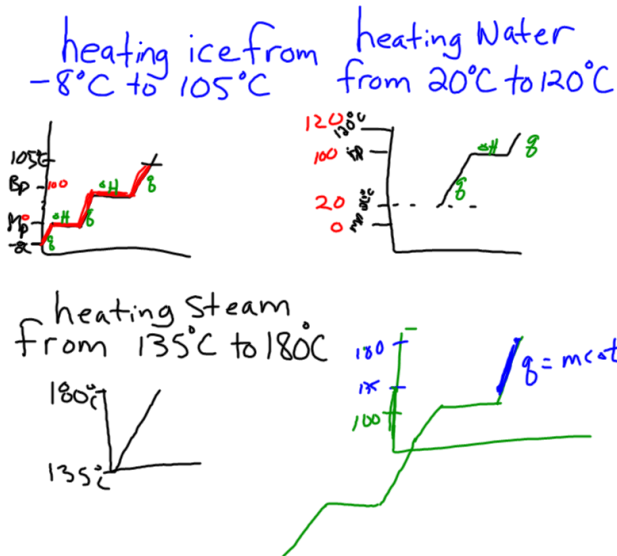 heating ice from
-8°C to 105°C
heating Water
from 20°C to 120°C
105°C
Bp 100
Mp 0
ΔH
ΔH
q
q
q
120
120°C
100
20
0
mp
ΔH
q
q
heating Steam
from 135°C to 180°C
180°C
135°C
180
135
100
q = mcΔt